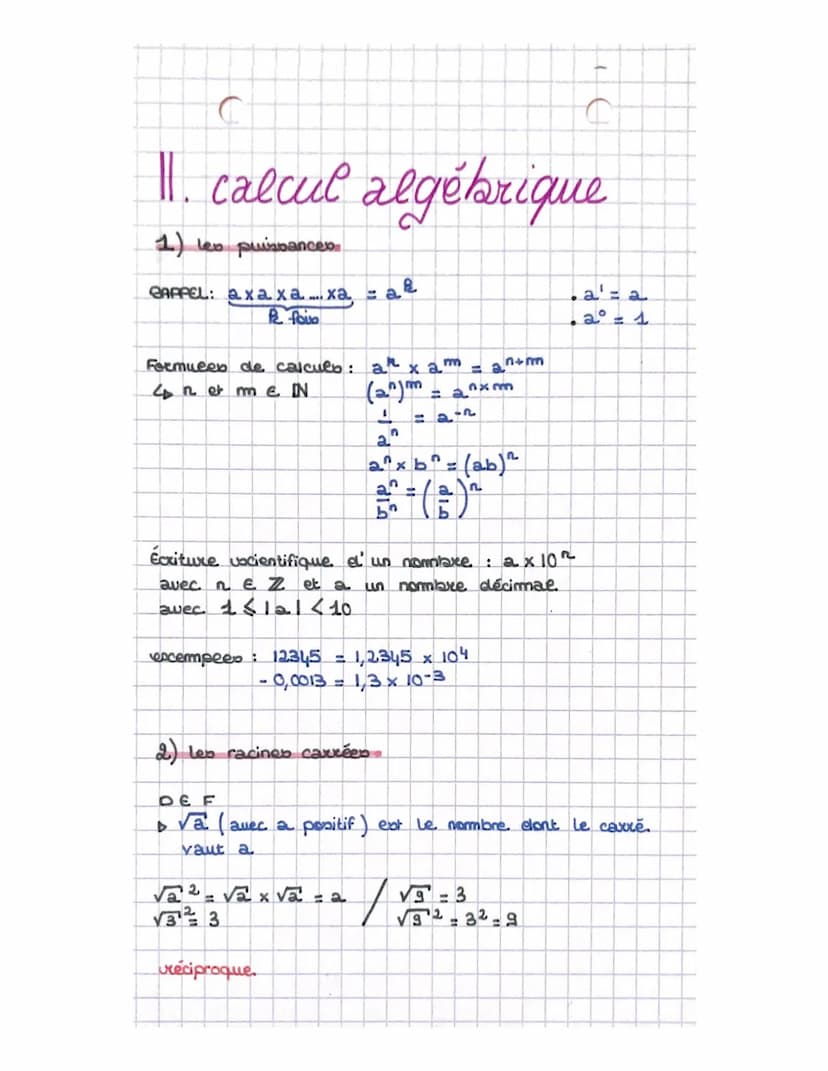 II. calcul algébrique
1) les puissances
RAPPEL: a x a x a .... x a = aᵏ
k fois
. a¹ = a
. a⁰ = 1
Formules de calculs : aⁿ x aᵐ = aⁿ⁺ᵐ
↳ n et m ∈ ℕ (aⁿ)ᵐ = aⁿˣᵐ
1/aⁿ = a⁻ⁿ
aⁿ x bⁿ = (ab)ⁿ
aⁿ/bⁿ = (a/b)ⁿ
Écriture scientifique d'un nombre : a x 10ⁿ
avec n ∈ ℤ et a un nombre décimal
avec 1 ⩽ |a| < 10
exemples : 12345 = 1,2345 x 10⁴
- 0,0013 = 1,3 x 10⁻³
2) les racines carrées
DEF
▷ √a (avec a positif) est le nombre dont le carré
vaut a
√a² = √a x √a = a / √9 = 3
√3² = 3 √9² = 3² = 9
réciproque.